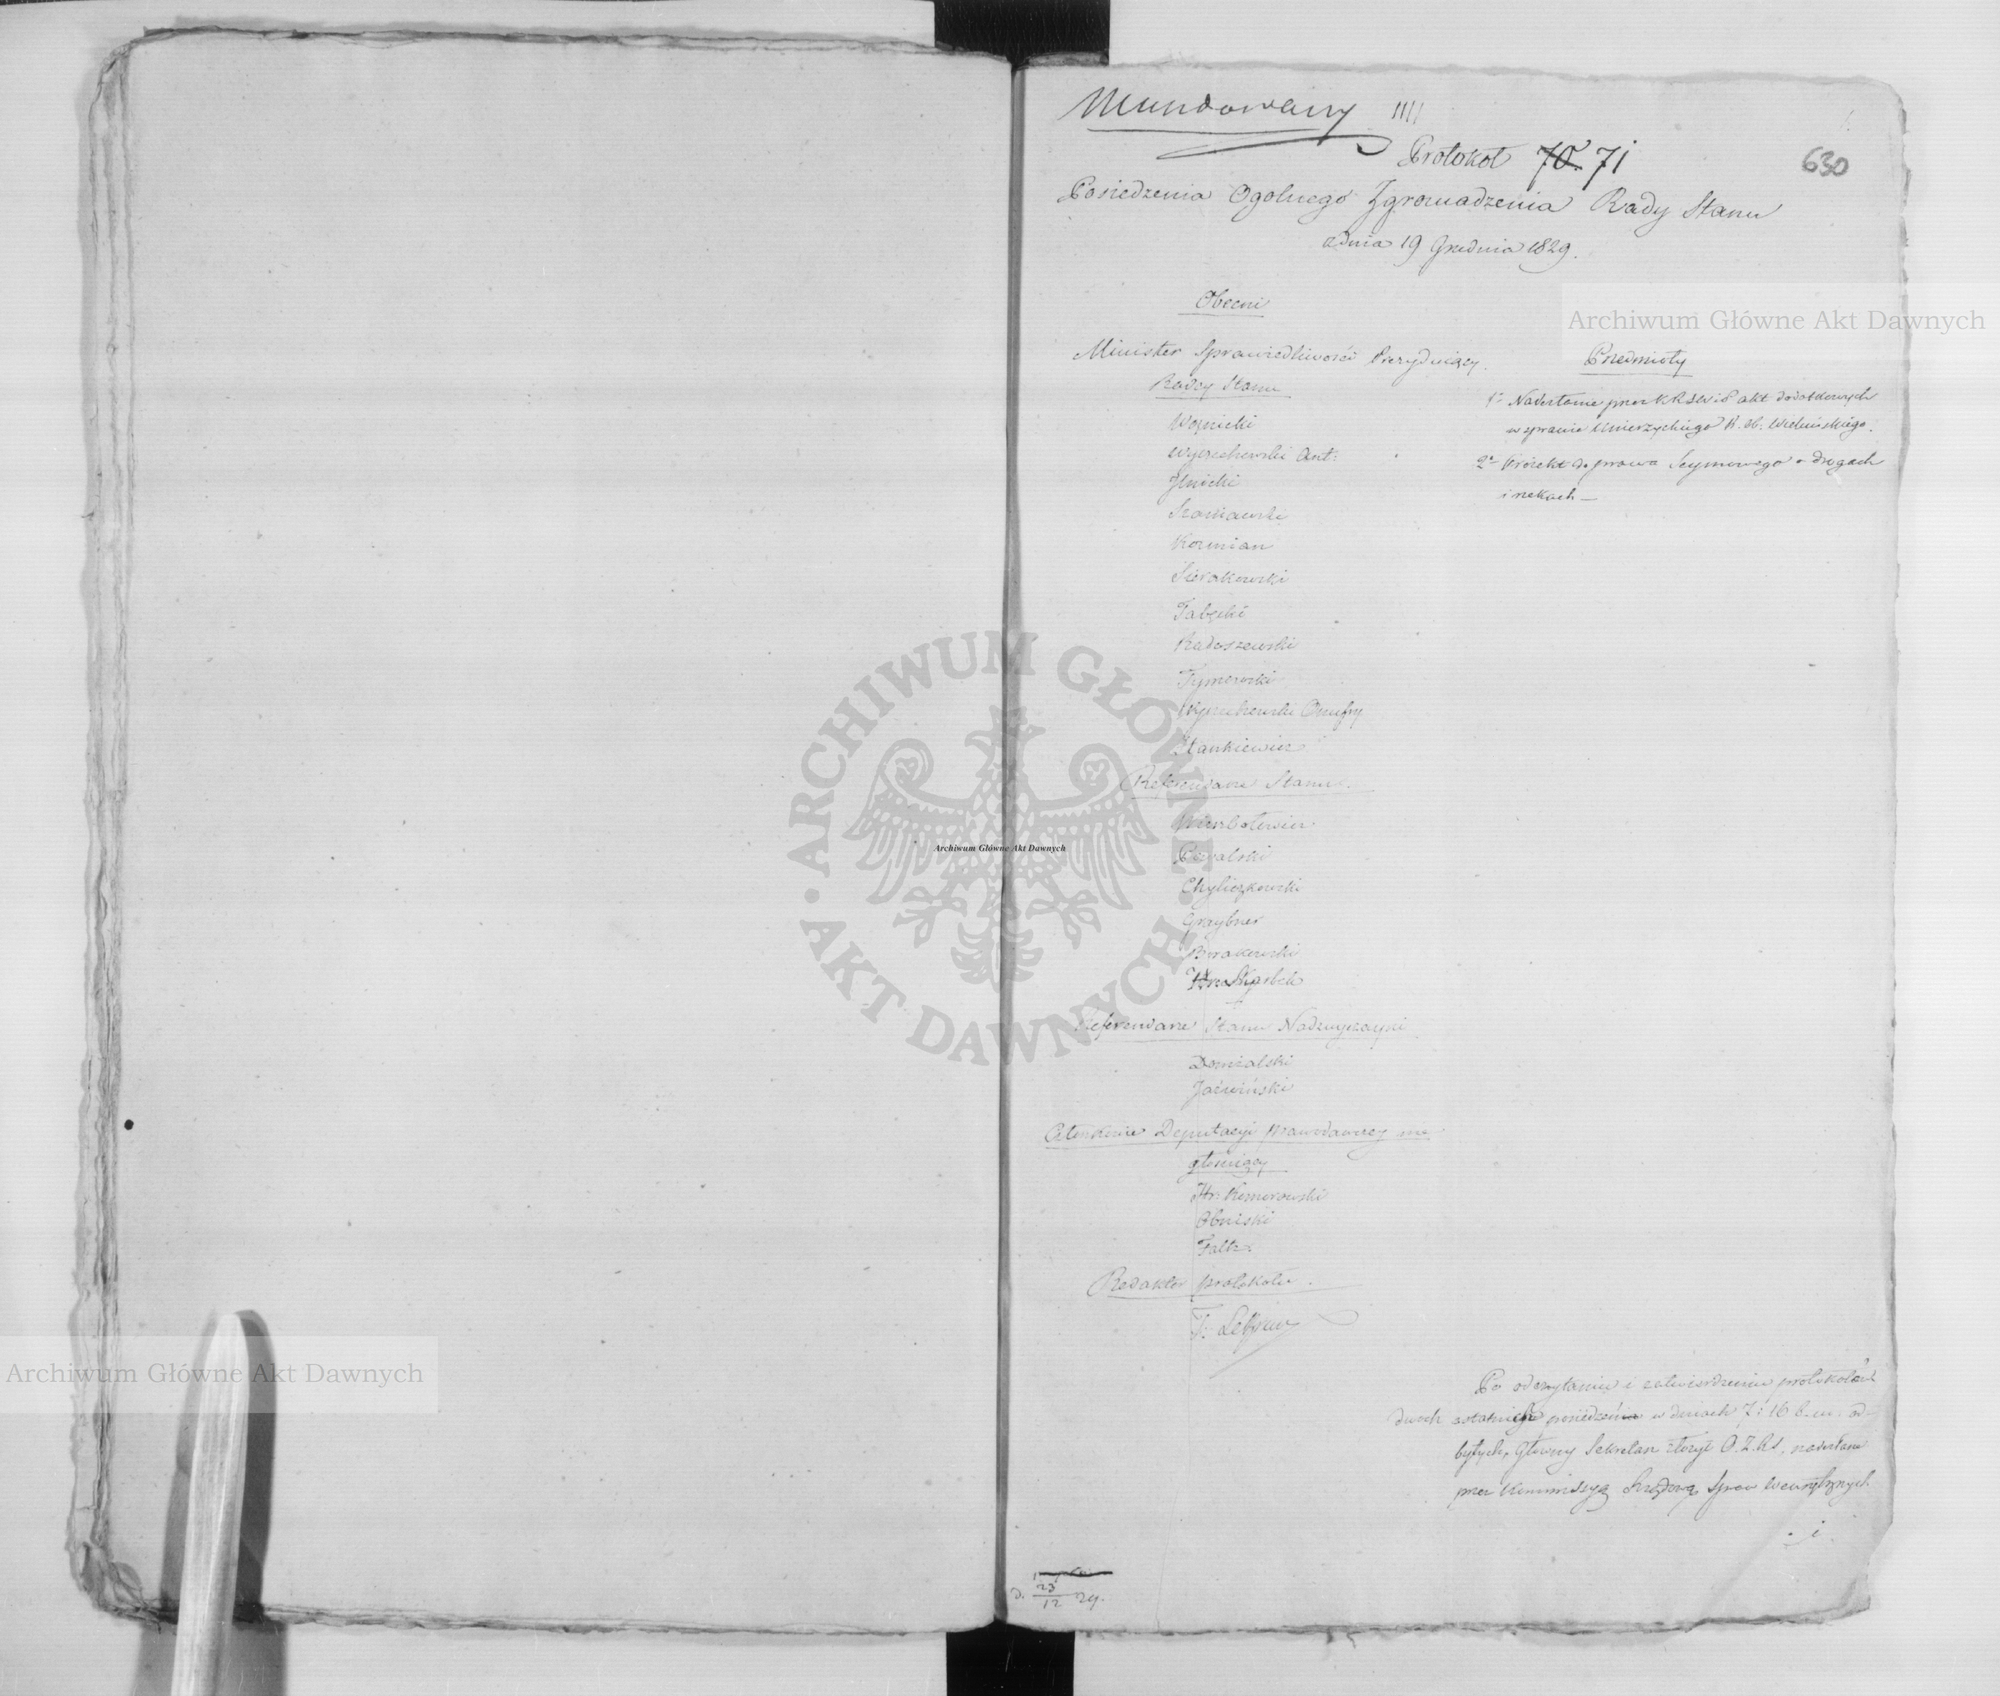 Mundowany
Protokół 70. 71
630
Posiedzenia Ogolnego Zgromadzenia Rady Stanu
z dnia 19 Grudnia 1829.
Obecni
Minister Sprawiedliwości Prezyduiący.
Radcy Stanu
Woźnicki
Wyczechowski Ant:
Szaniawski
Kozmian
Sierakowski
Tabęcki
Radoszewski
Tymowski
Wyczechowski Onufry
Stankiewicz
Referendarze Stanu.
Chyliczkowski
Graybner
Brakowski
Referendarze Stanu Nadzwyczayni
Domżalski
Jaźwiński
Członkowie Deputacyi prawodawczey nie
głosuiący
Hr: Komorowski
Obniski
Faltz.
Redaktor protokołu.
Przedmioty
1° Nadesłanie przez K R S W i P akt dodatkowych
w sprawie Unierzyskiego K. Ob. Wieluńskiego.
2° Proiekt do prawa Seymowego o drogach
i rzekach —
Po odczytaniu i zatwierdzeniu protokołów
dwóch ostatnich posiedzeń w dniach 7 i 16 b. m. od-
bytych, Główny Sekretarz złożył O. Z. R. S. nadesłane
przez Kommissyą Rządową Spraw Wewnętrznych
i
23
12 29.
Archiwum Główne Akt Dawnych
Archiwum Główne Akt Dawnych
Archiwum Główne Akt Dawnych
ARCHIWUM GŁÓWNE AKT DAWNYCH